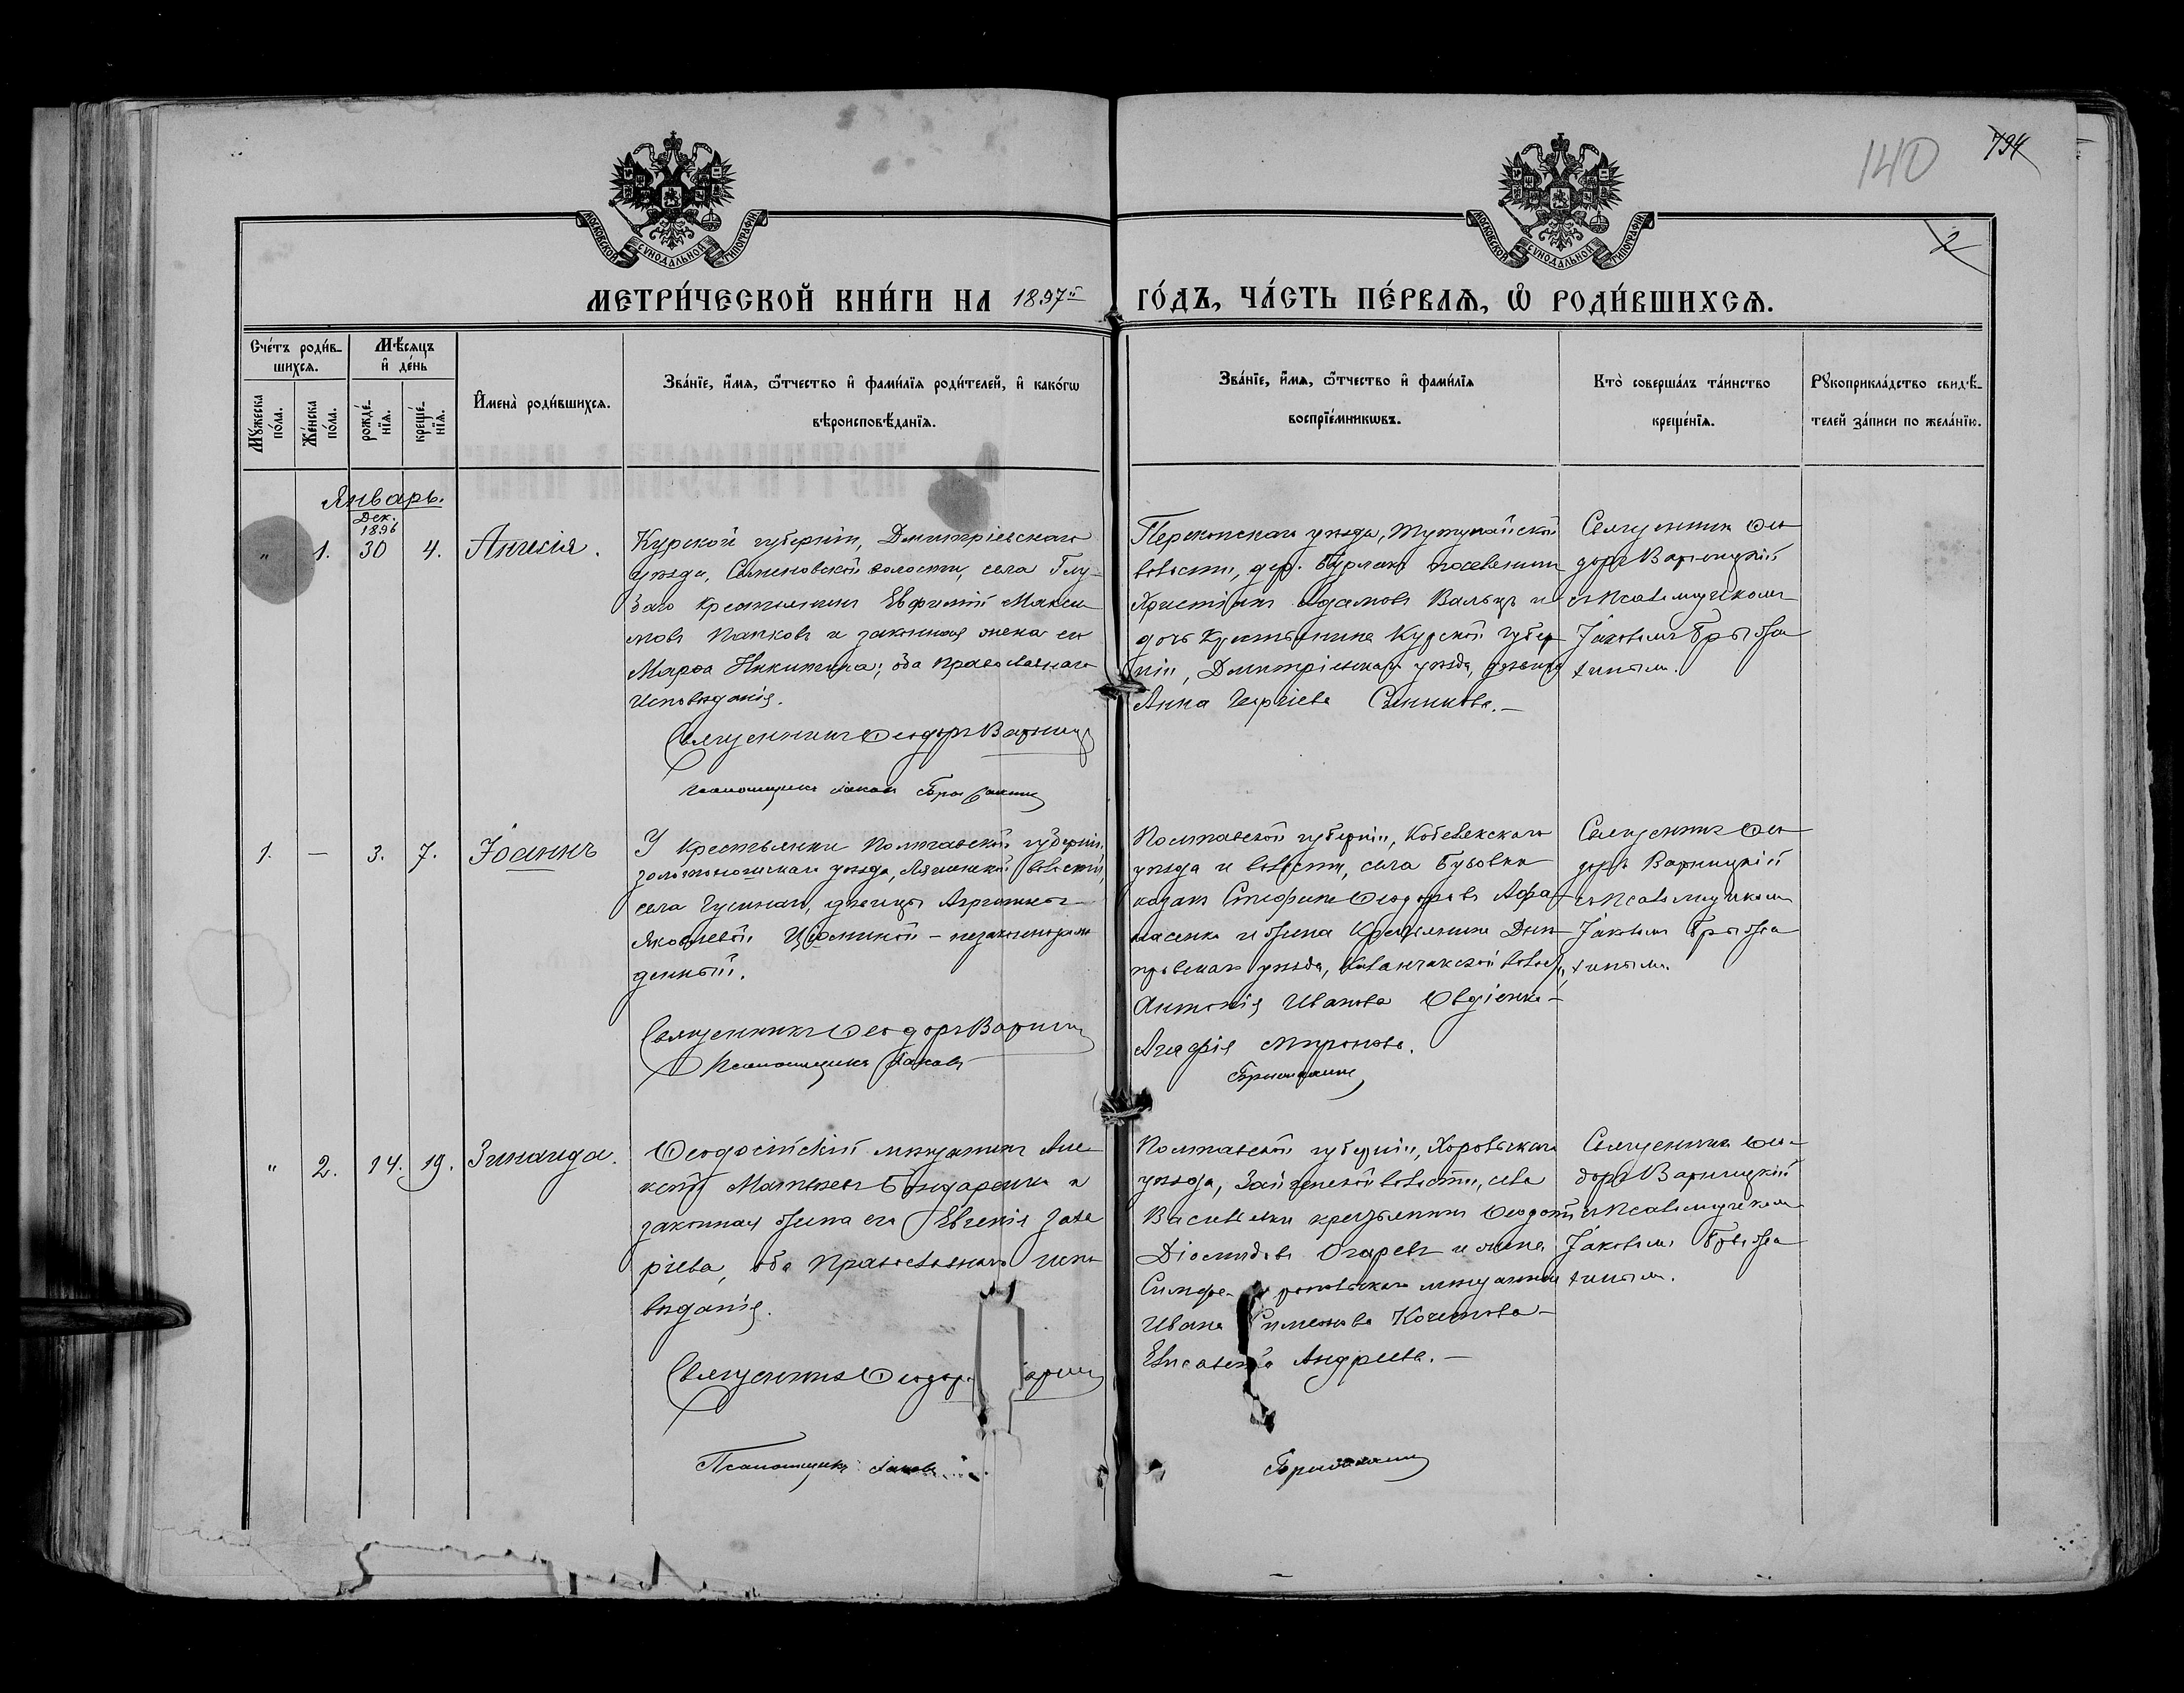 140
794
2
МОСКОВСКОЙ СѴНОДАЛЬНОЙ ТИПОГРАФІИ
МОСКОВСКОЙ СѴНОДАЛЬНОЙ ТИПОГРАФІИ
МЕТРИ́ЧЕСКОЙ КНИ́ГИ НА 1897й ГО́ДЪ, ЧА́СТЬ ПЕ́РВАѦ, Ѡ҆ РОДИ́ВШИХСѦ.
Счéтъ роди́в-
шихсѧ.
Мꙋ́жеска
по́ла.
Же́нска
по́ла.
Мѣ́сѧцъ
и҆ де́нь
рожде́-
нїѧ.
креще́-
нїѧ.
И҆мена̀ роди́вшихсѧ.
Зва́нїе, и҆́мѧ, ѻ҆́тчество и҆ фами́лїѧ роди́телей, и҆ како́гѡ
вѣроисповѣ́данїѧ.
Зва́нїе, и҆́мѧ, ѻ҆́тчество и҆ фами́лїѧ
воспрїе́мникѡвъ.
Кто̀ соверша́лъ та́инство
креще́нїѧ.
Рꙋкоприкла́дство свидѣ́-
телей за́писи по жела́нїю.
Январь.
Дек.
1896
" 1. 30 4. Анисія.
Курской губерніи, Дмитріевскаго
уѣзда, Семеновской волости, села Глу-
крестьянинъ Евфимій Макси
мовъ Папковъ и законная жена его
Марѳа Никитина; оба православнаго
исповѣданія.
Священникъ Ѳеодоръ Варниц
Псаломщикъ Іаковъ
Перекопскаго уѣзда,
волости, дер. Бурлакъ поселянинъ
Христіанъ Адамовъ Вальцъ и
дочь крестьянина Курской губер
ніи, Дмитріевскаго уѣзда, дѣвица
Анна Георгіева
Священникъ Ѳео
доръ Варницкій
съ псаломщикомъ
Іаковомъ
1. — 3. 7. Іоаннъ
У крестьянки Полтавской губерніи,
золотоношскаго уѣзда, волости,
села дѣвицы
Яковлевой – незаконнорож
денный.
Священникъ Ѳеодоръ Варниц
Псаломщикъ Іаковъ
Полтавской губерніи, Кобелякскаго
уѣзда и волости, села Бузовки
казакъ Стефанъ Ѳеодоровъ Аѳа
насенко и жена крестьянина Днѣ
провскаго уѣзда, Каланчакской волос.,
Антонія Иванова Овдіенко –
Агафія Миронова.
Священникъ Ѳео
доръ Варницкій
съ псаломщикомъ
Іаковомъ
" 2. 14. 19. Зинаида.
Ѳеодосійскій мѣщанинъ Але
ксѣй Матвѣевъ Бондаренко и
законная жена его Евгенія Заха
ріева, оба Православнаго испо
вѣданія.
Священникъ Ѳеодоръ
Псаломщикъ Іаковъ
Полтавской губерніи, Хорольскаго
уѣзда, волости, села
Васильевки крестьянинъ Ѳеодотъ
Діомидовъ Огаревъ и жена
Симфе-ропольскаго мѣщанина
Ивана Симеонова Кочетова –
Елисавета Андреева. –
Священникъ Ѳео-
доръ Варницкій
съ псаломщикомъ
Іаковомъ